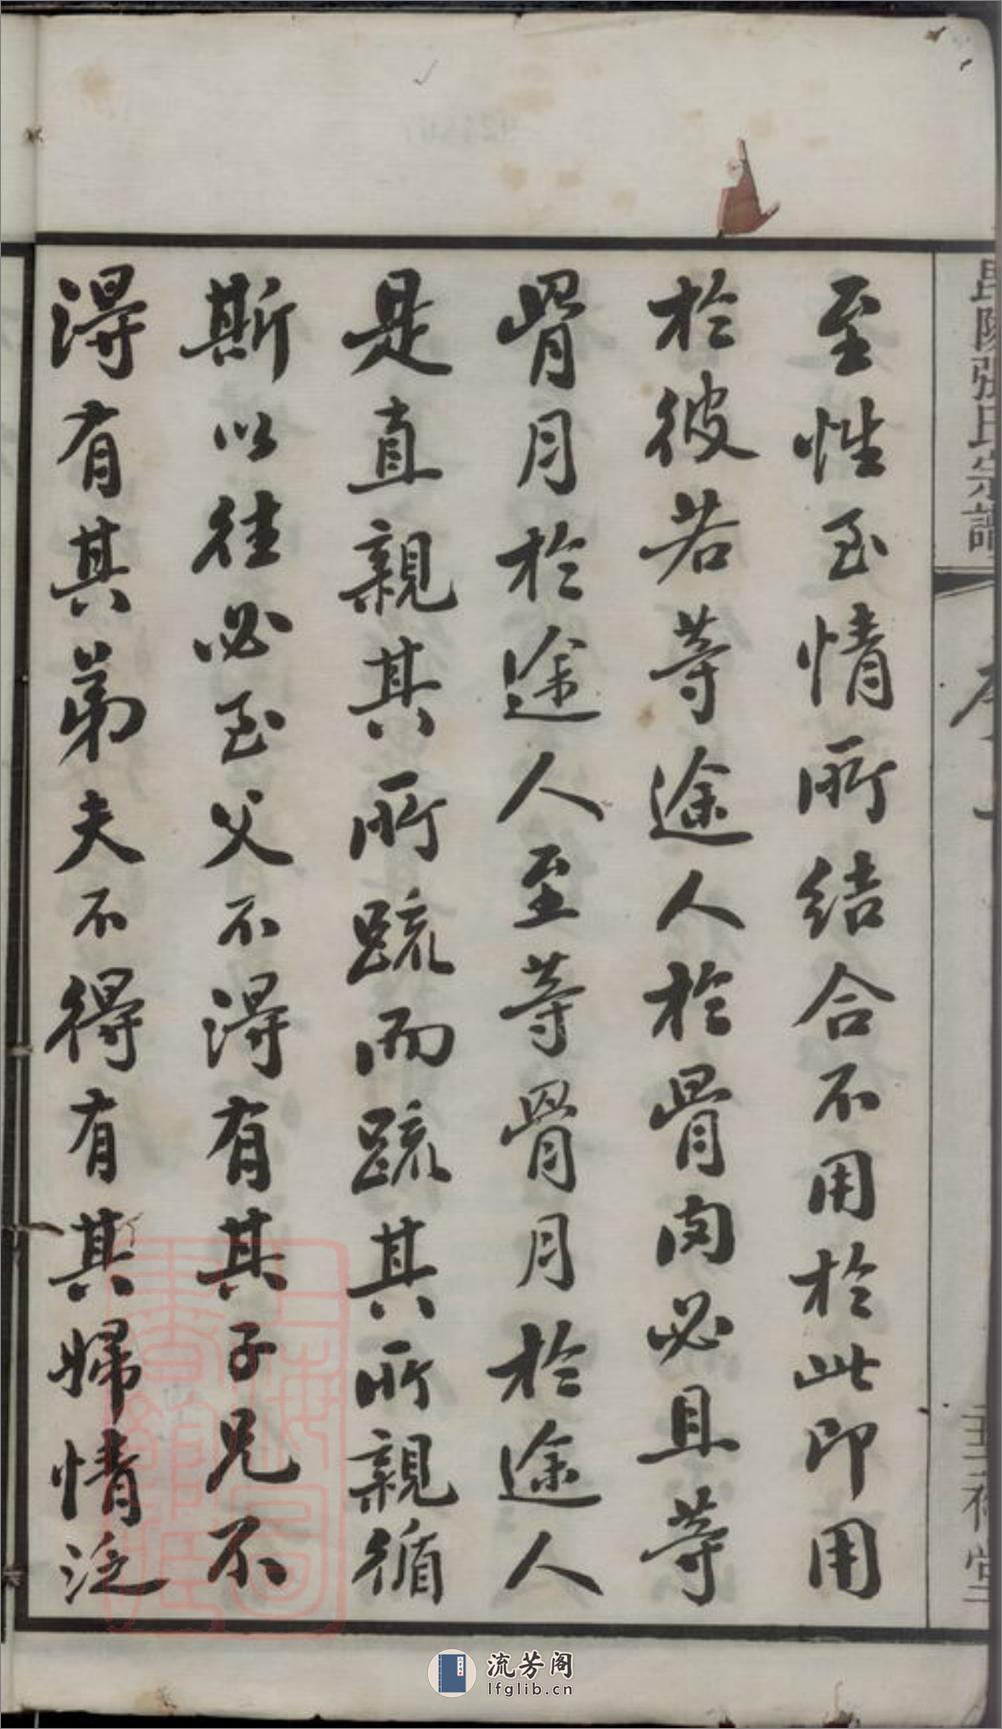 毘陵張氏宗譜
至性至情所結合不用於此即用
於彼若等途人於骨肉必且等
骨月於途人至等骨月於途人
是直親其所疏而疏其所親循
斯以往必至父不得有其子兄不
得有其弟夫不得有其婦情泛
流芳阁
lfglib.cn